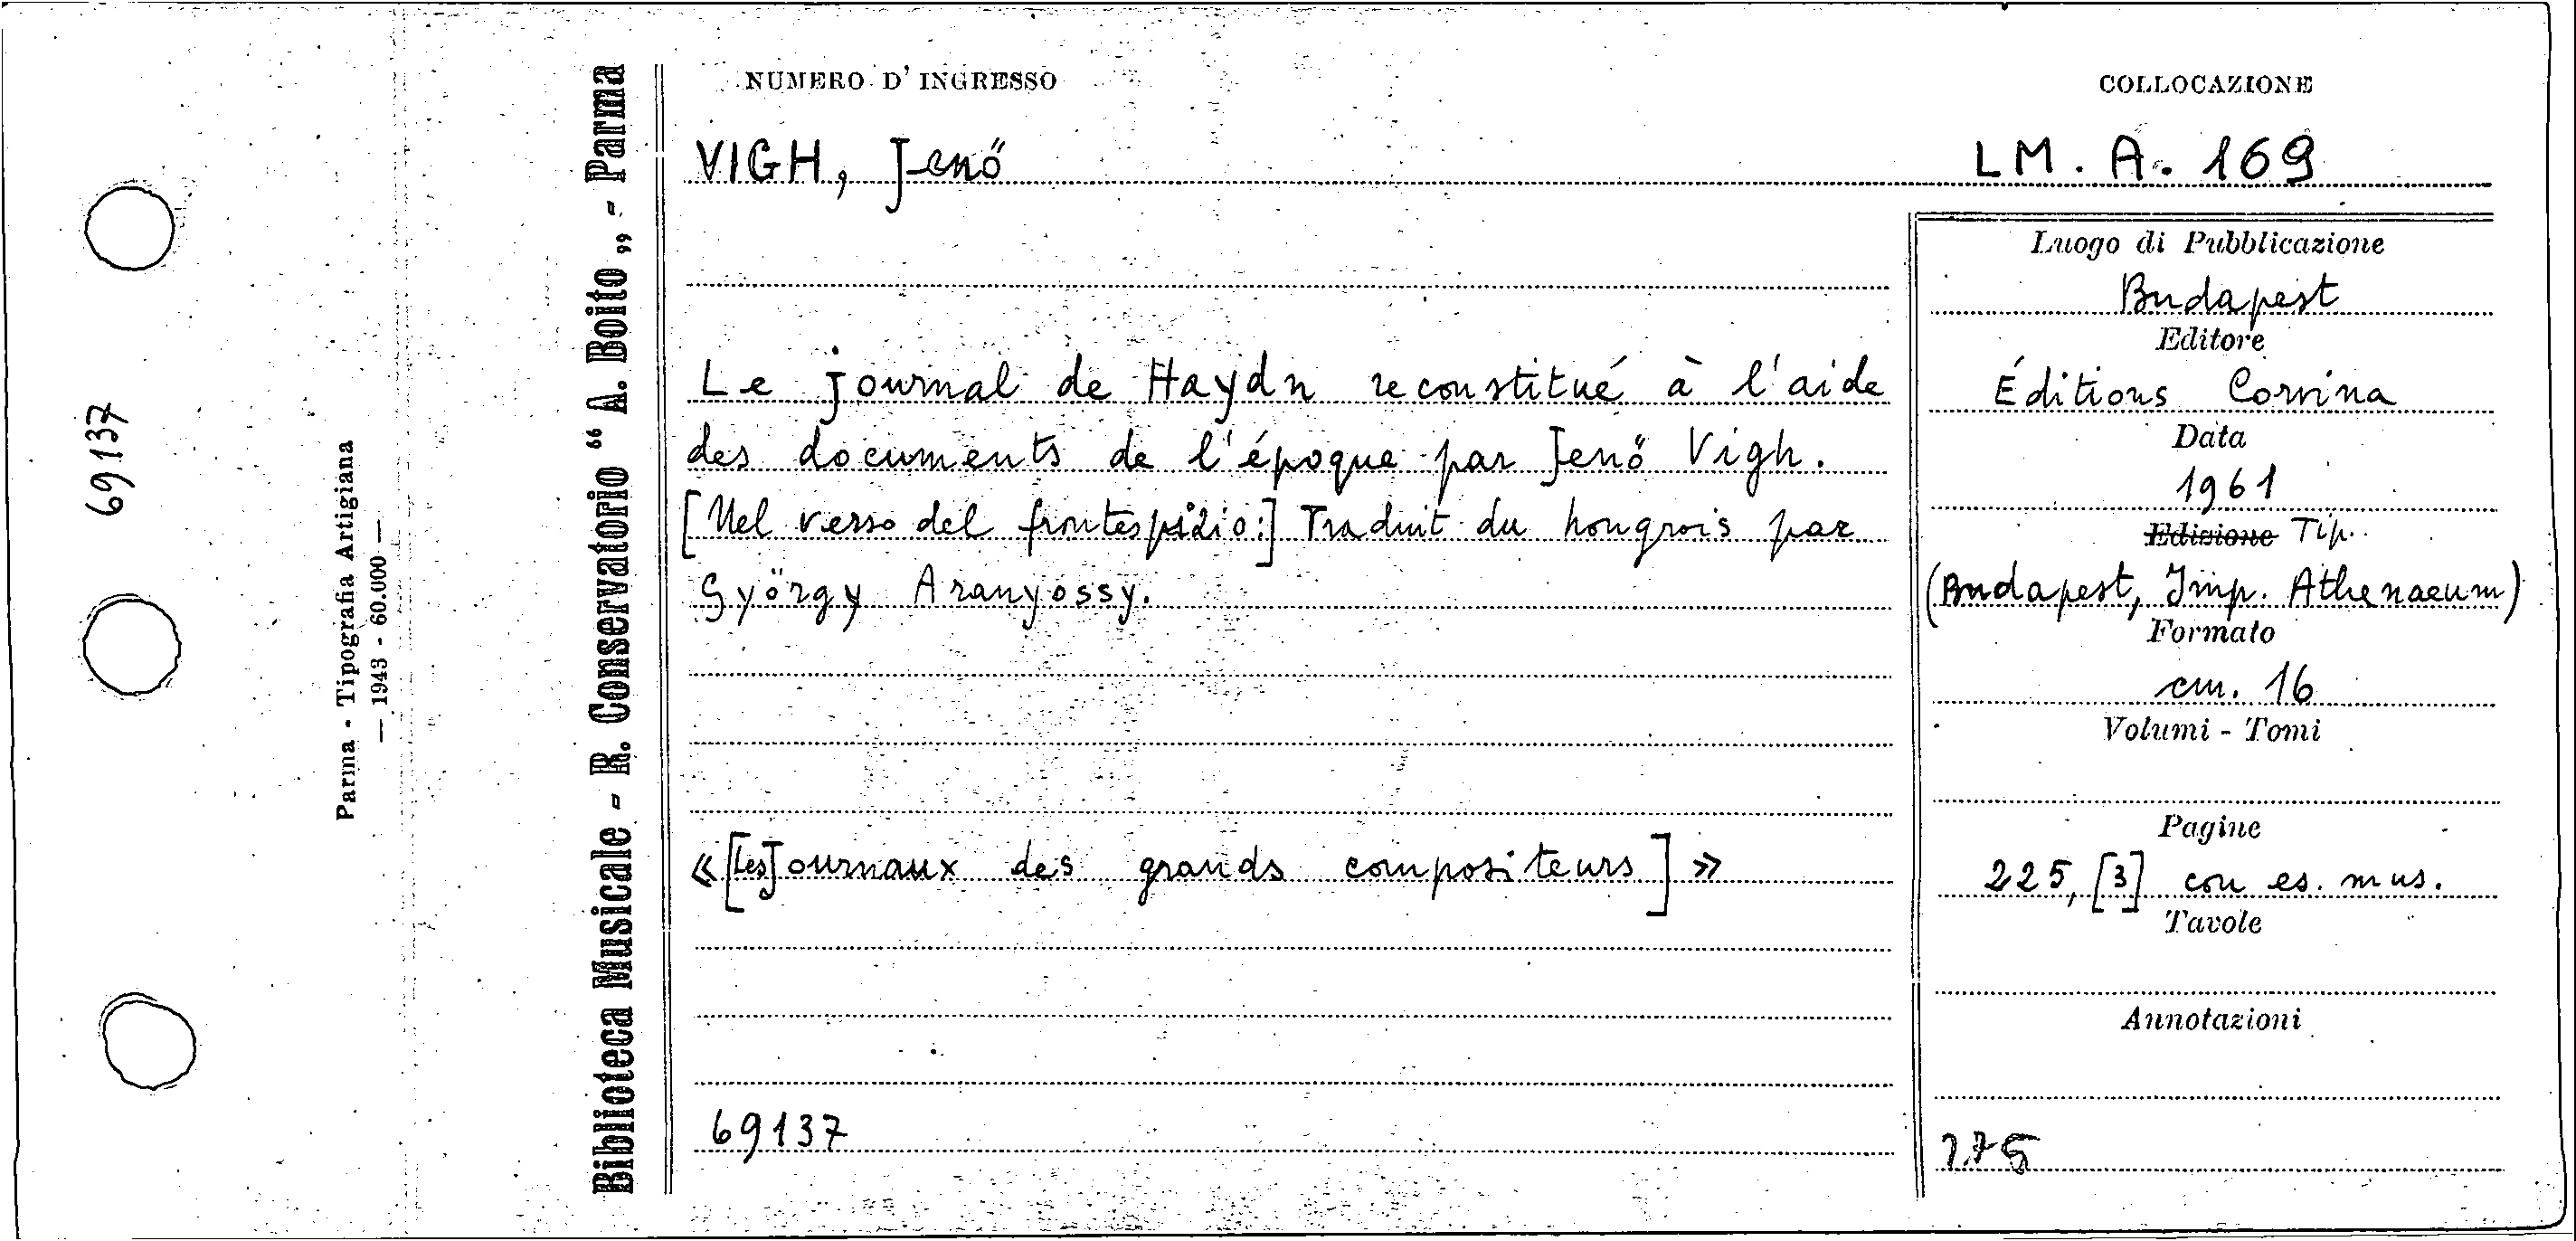 NUMERO D' INGRESSO
COLLOCAZIONE
VIGH, Jenő
LM. A. 169
Le Journal de Haydn reconstitué à l'aide
des documents de l'époque par Jenő Vigh.
[Nel verso del frontespizio:] Traduit du hongrois par
György Aranyossy.
«[Les Journaux des grands compositeurs]»
69137
Luogo di Pubblicazione
Budapest
Editore
Éditions Corvina
Data
1961
Edizione Tip.
(Budapest, Imp. Athenaeum)
Formato
cm. 16
Volumi - Tomi
Pagine
225, [3] con es. mus.
Tavole
Annotazioni
Biblioteca Musicale - R. Conservatorio “ A. Boito „ - Parma
Parma - Tipografia Artigiana
— 1943 - 60.000 —
69137